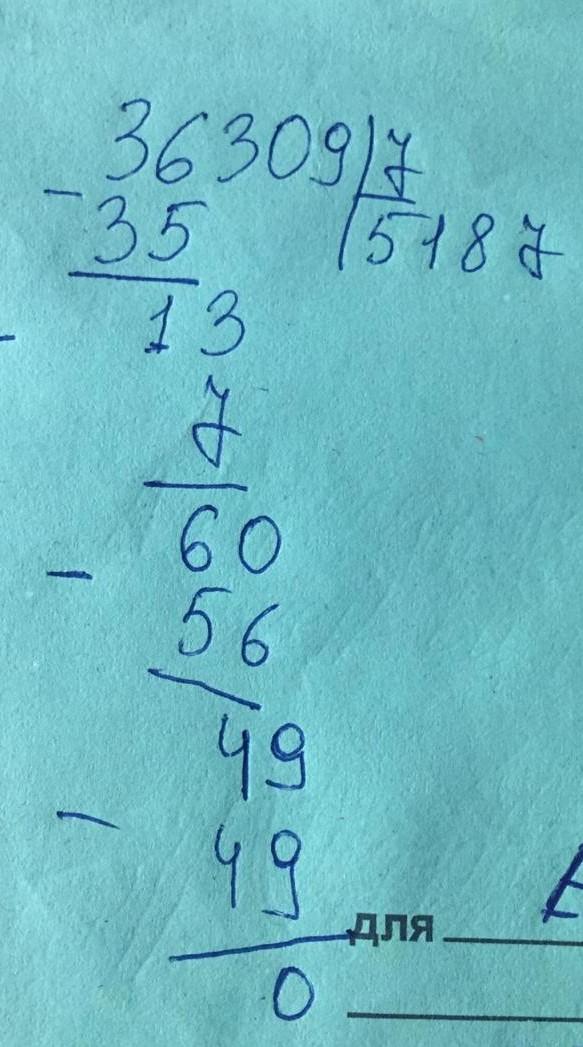 36309 7
- 35 5187
- 13
7
- 60
56
49
- 49
для
0